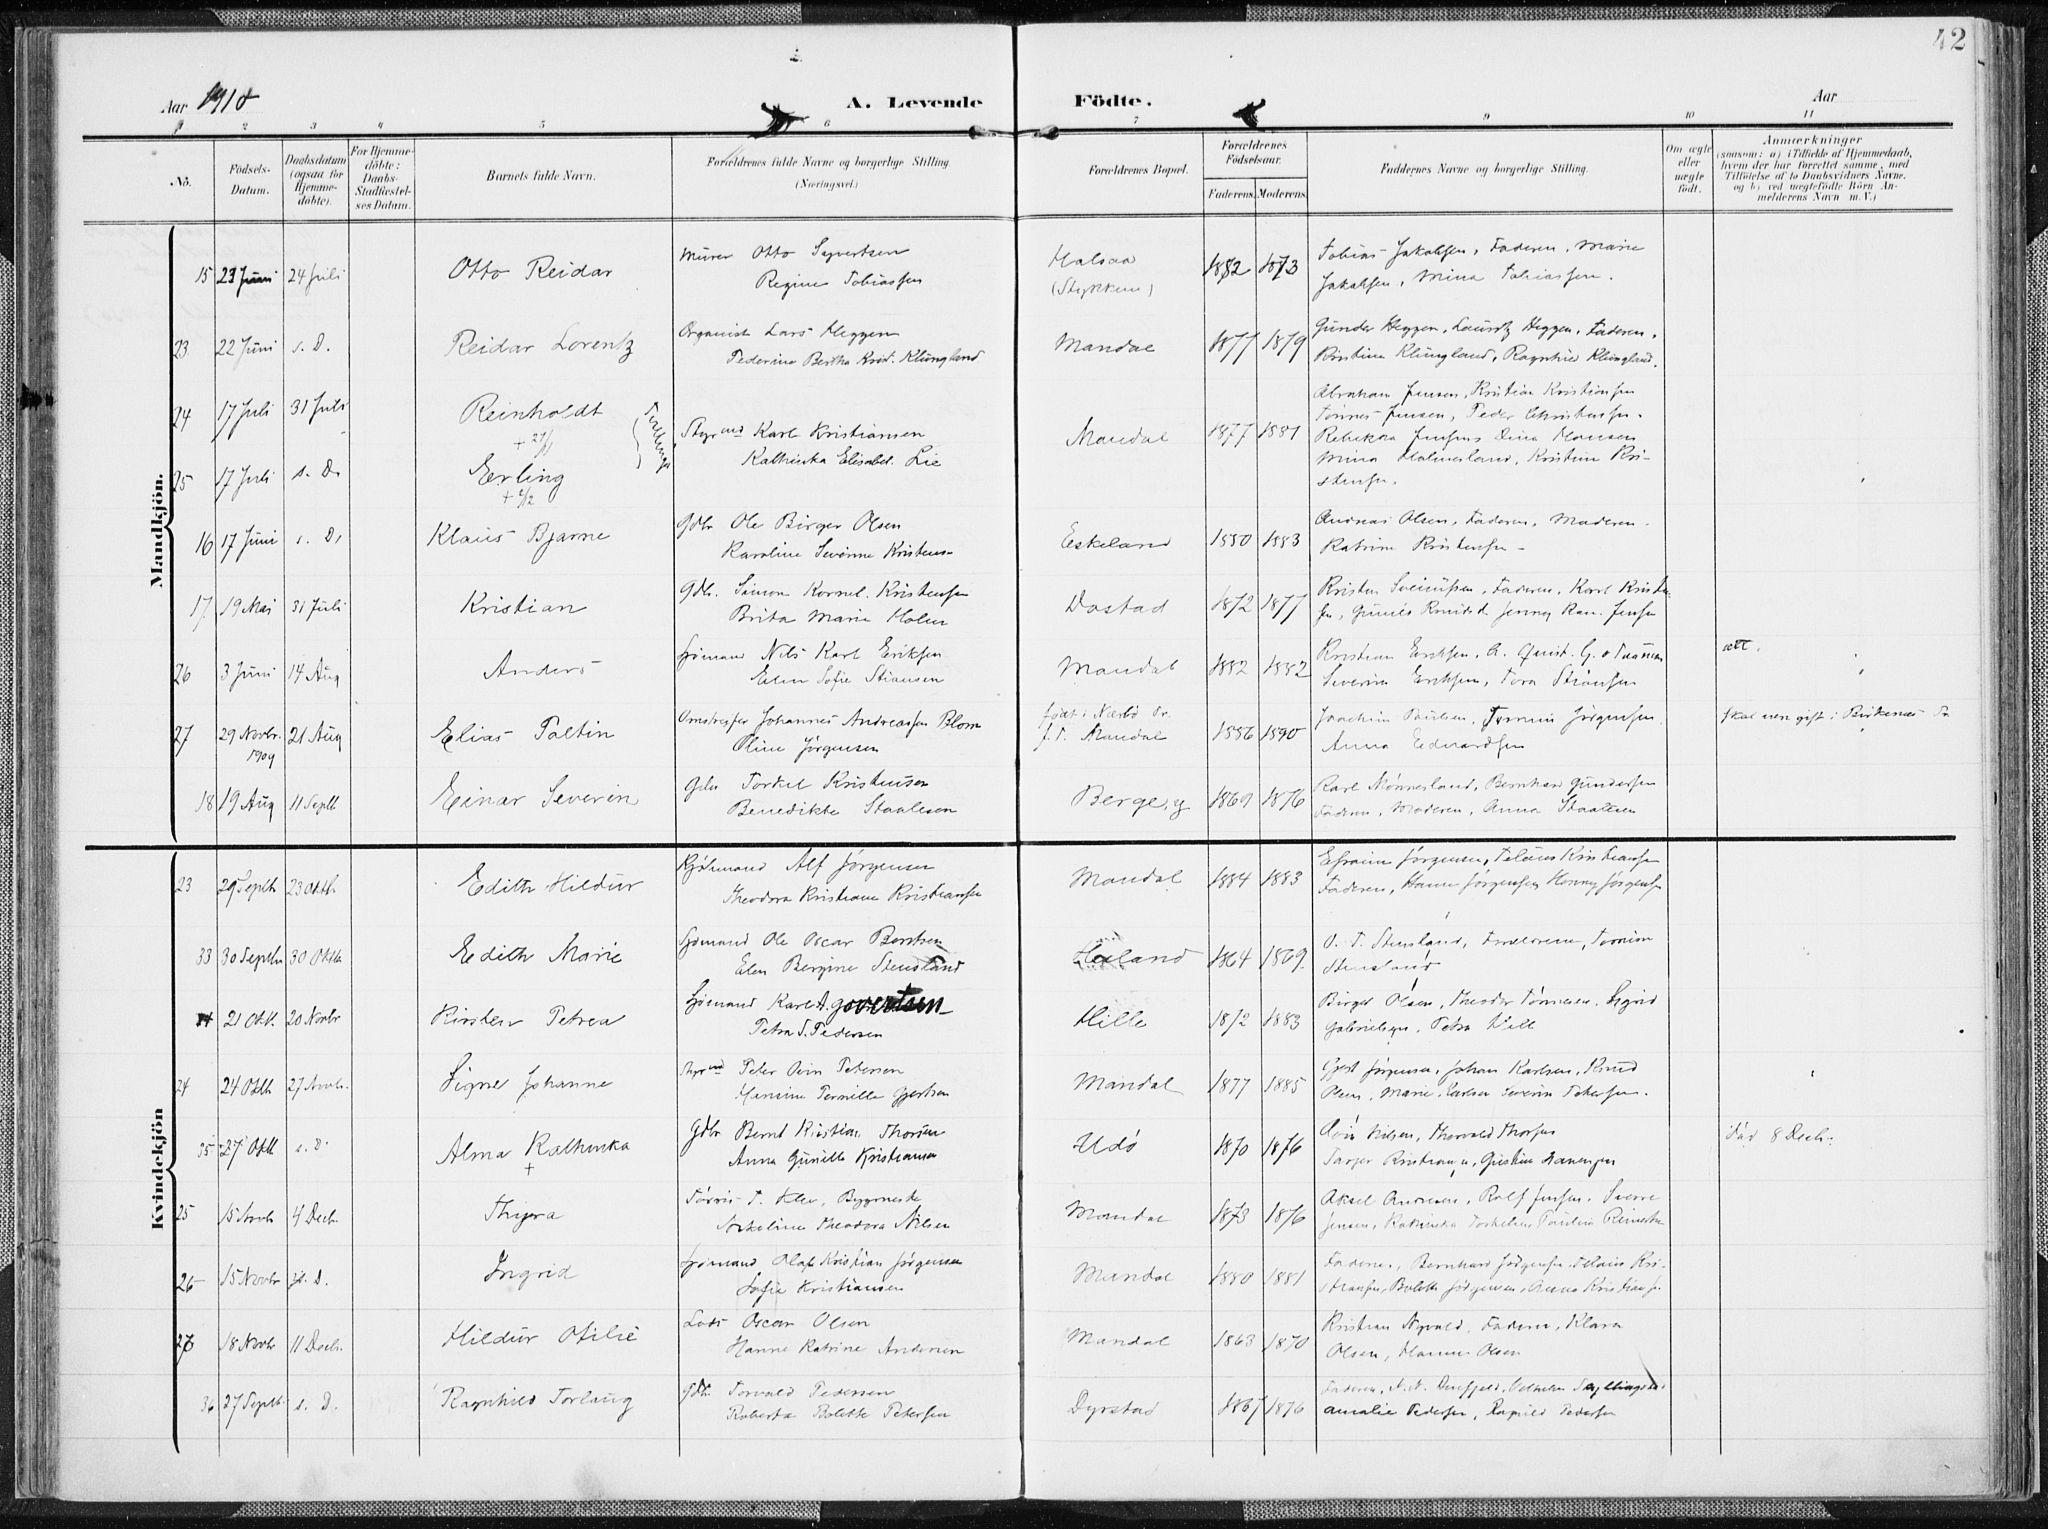 42
Aar 1910
A. Levende Födte.
Aar
1 2 3 4 5 6 7 8 9 10 11
No.
Födsels-Datum.
Daabsdatum (ogsaa for Hjemme-döbte).
For Hjemme-döbte: Daabs-Stadfæstel-ses Datum.
Barnets fulde Navn.
Forældrenes fulde Navne og borgerlige Stilling (Næringsvei.)
Forældrenes Bopæl.
Forældrenes Födselsaar.
Faderens. Moderens.
Faddernes Navne og borgerlige Stilling.
Om ægte eller uægte födt.
Anmærkninger
(saasom: a) i Tilfælde af Hjemmedaab, hvem der har forrettet samme, med Tilföielse af to Daabsvidners Navne, og b) ved uægtefödte Börn An-melderens Navn m.V.)
Mandkjön.
15 23 Juni 24 Juli Otto Reidar Murer Otto Syvertsen Halsaa 1882 1873 Tobias Jakobsen, Faderen, Marie
Regine Tobiassen (Stykkene) Jakobsen, Mina Tobiassen.
23 22 Juni s. D. Reidar Lorentz Organist Lars Heggen Mandal 1877 1879 Gunder Heggen, Lauritz Heggen, Faderen,
Pederine Bertha Krist. Klungland Kristina Klungland, Ragnhild Klungland.
24 17 Juli 31 Juli Reinholdt Tvillinger Styrmd Karl Kristiansen Mandal 1877 1881 Abraham Jensen, Kristian Kristiansen
Kathinka Elisabet Lie Tønnes Jensen, Peder Christensen.
25 17 Juli s. D. Erling Rebekka Jensen, Dina Hansen
Mina Holmesland, Kristine Kri-
stensen.
16 17 Juni s. D. Klaus Bjarne Gdbr Ole Birger Olsen Eskeland 1880 1883 Andreas Olsen, Faderen, Moderen
Karoline Severine Kristens- Katrine Kristensen
17. 19 Mai 31 Juli Kristian Gdbr. Simon Kornel. Kristensen Dostad 1872 1877 Faderen, Karl
Brita Marie Holm
26 3 Juni 14 Aug Anders Sjömand Nils Karl Eriksen Mandal 1882 1882 Kristian Eriksen,
Elen Sofie Stiansen Severine Eriksen, Tora Stiansen
27 29 Novbr. 1909 21 Aug Elias Paltin Johannes Andreassen Blom født i Nærbö Pr. 1886 1890 Joachim Paulsen, Jørgensen
Oline Jørgensen f. T. Mandal Anna Edvardsen
Skal være gift i Birkenæs Pr
18 19 Aug 11 Septb Einar Severin Gdbr Torkel Kristensen Berge, y 1869 1876 Karl Mønnesland, Bernhard Gundersen
Benedikte Staalesen Faderen, Moderen, Anna Staalesen
Kvindekjön
23 29 Septb 23 Oktb. Edith Hildur Alf Jørgensen Mandal 1884 1883 Efraim Jørgensen, Kristiansen
Theodora Kristiane Kristiansen Faderen, Hanna Jørgensen, Jørgensen
33 30 Septb 30 Oktb Edith Marie Sjømand Ole Oscar Berntsen Haland 1864 1869 O. T. Stensland,
Elen Bergine Stensland Stensland
21 Okt. 20 Novbr Kirsten Petrea Sjømand Karl A. Govertsen Hille 1872 1883 Birger Olsen, Theodor Tønnesen, Sigrid
Petra T. Pedersen Gabrielsen, Petra
24 24 Oktb 27 Novbr. Signe Johanne Styrmd Peter Petersen Mandal 1877 1885 Gjert Jørgensen, Johan Karlsen, Knud
Hansine Pernille Gjertsen Olsen, Marie Karlsen, Severin Petersen.
35 27 Oktb s. D. Alma Kathinka Gdbr Bernt Kristian Thorsen Udö 1870 1876 Nilsen, Thorvald Thorsen
Anna Gunille Kristiansen
8 Decb.
25 15 Novb 4 Decb. Thyra T. Klev, Bygmester Mandal 1873 1876 Aksel Andresen, Rolf Jensen, Sverre
Theodora Nilsen Jensen,
26 15 Novbr s. D. Ingrid Sjømand Olaf Kristian Jørgensen Mandal 1880 1881 Faderen, Bernhard Jørgensen, Kri-
Sofie Kristiansen stiansen, Bolette Jørgensen, Anna Kristiansen
27 18 Novbr 11 Decb. Hildur Otilie Lods Oscar Olsen Mandal 1863 1870 Kristian Nyvold, Faderen, Klara
Hanne Katrine Andersen Olsen, Hanna Olsen
36 27 Septb. s. D. Ragnhild Torlaug Gdbr Torvald Pedersen Dyrstad 1867 1876 Faderen,
Roberta Bolette Petersen Amalie Pedersen, Ragnhild Pedersen